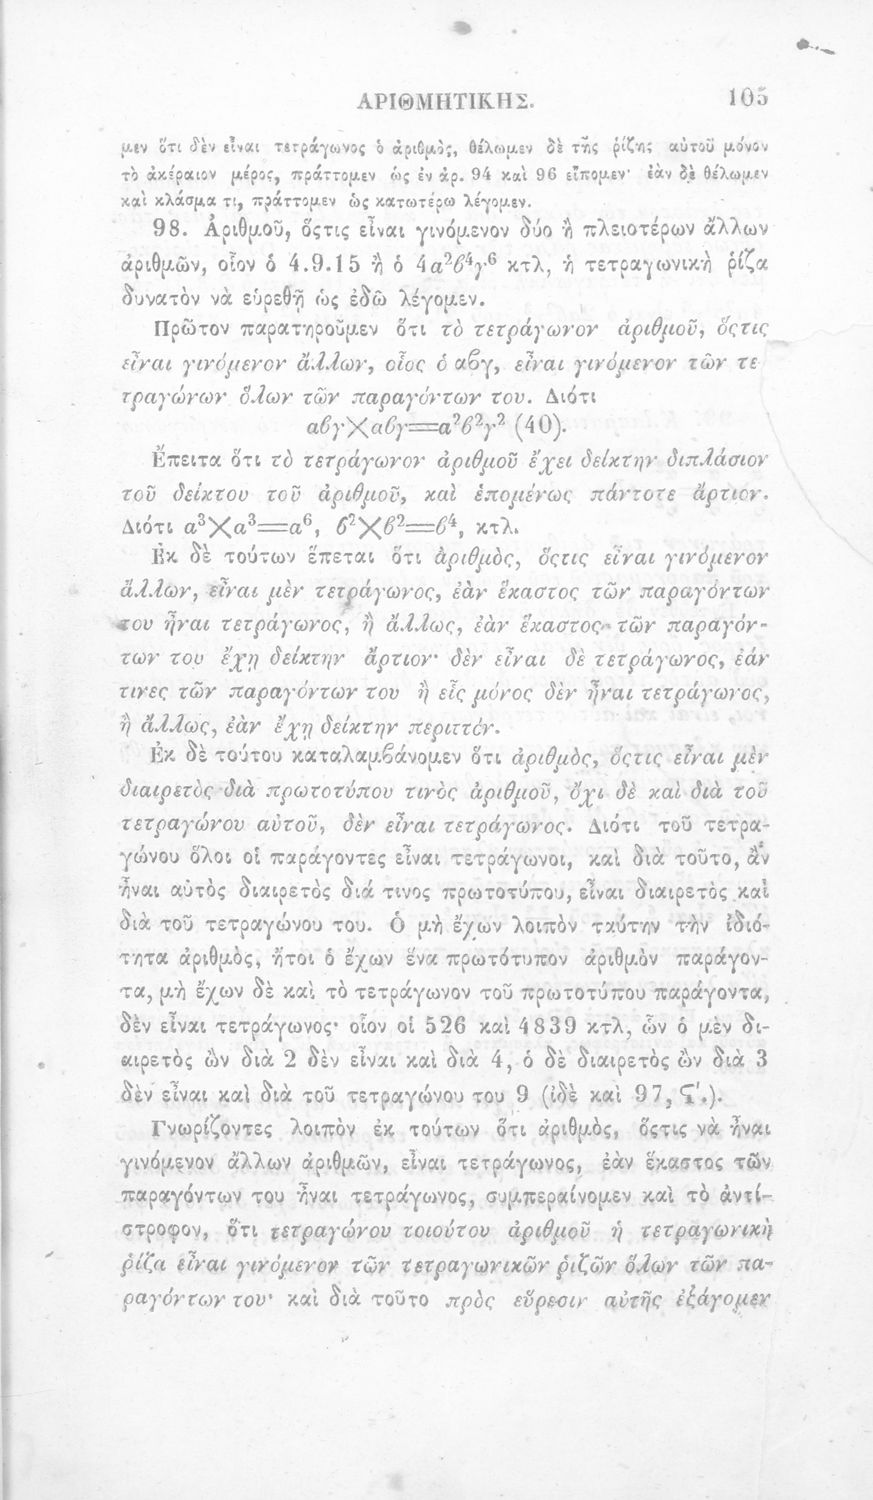 ΑΡΙΘΜΗΤΙΚΗΣ. 105
μεν ὅτι δὲν εἶναι τετράγωνος ὁ ἀριθμὸς, θέλωμεν δὲ τῆς ῥίζης αὐτοῦ μόνον
τὸ ἀκέραιον μέρος, πράττομεν ὡς ἐν ἀρ. 94 καὶ 96 εἴπομεν· ἐὰν δὲ θέλωμεν
καὶ κλάσμα τι, πράττομεν ὡς κατωτέρω λέγομεν.
98. Ἀριθμοῦ, ὅςτις εἶναι γινόμενον δύο ἢ πλειοτέρων ἄλλων
ἀριθμῶν, οἷον ὁ 4.9.15 ἢ ὁ 4α²ϐ⁴γ⁶ κτλ, ἡ τετραγωνικὴ ῥίζα
δυνατὸν νὰ εὑρεθῇ ὡς ἐδῶ λέγομεν.
Πρῶτον παρατηροῦμεν ὅτι τὸ τετράγωνον ἀριθμοῦ, ὅςτις
εἶναι γινόμενον ἄλλων, οἷος ὁ αϐγ, εἶναι γινόμενον τῶν τε
τραγώνων ὅλων τῶν παραγόντων του. Διότι
αϐγ×αϐγ=α²ϐ²γ² (40).
Ἔπειτα ὅτι τὸ τετράγωνον ἀριθμοῦ ἔχει δείκτην διπλάσιον
τοῦ δείκτου τοῦ ἀριθμοῦ, καὶ ἑπομένως πάντοτε ἄρτιον.
Διότι α³×α³=α⁶, ϐ²×ϐ²=ϐ⁴, κτλ.
Ἐκ δὲ τούτων ἕπεται ὅτι ἀριθμὸς, ὅςτις εἶναι γινόμενον
ἄλλων, εἶναι μὲν τετράγωνος, ἐὰν ἕκαστος τῶν παραγόντων
του ἦναι τετράγωνος, ἢ ἄλλως, ἐὰν ἕκαστος τῶν παραγόν-
των του ἔχῃ δείκτην ἄρτιον· δὲν εἶναι δὲ τετράγωνος, ἐάν
τινες τῶν παραγόντων του ἢ εἷς μόνος δὲν ἦναι τετράγωνος,
ἢ ἄλλως, ἐὰν ἔχῃ δείκτην περιττόν.
Ἐκ δὲ τούτου καταλαμϐάνομεν ὅτι ἀριθμὸς, ὅςτις εἶναι μὲν
διαιρετὸς διὰ πρωτοτύπου τινὸς ἀριθμοῦ, ὄχι δὲ καὶ διὰ τοῦ
τετραγώνου αὐτοῦ, δὲν εἶναι τετράγωνος. Διότι τοῦ τετρα-
γώνου ὅλοι οἱ παράγοντες εἶναι τετράγωνοι, καὶ διὰ τοῦτο, ἂν
ἦναι αὐτὸς διαιρετὸς διά τινος πρωτοτύπου, εἶναι διαιρετὸς καὶ
διὰ τοῦ τετραγώνου του. Ὁ μὴ ἔχων λοιπὸν ταύτην τὴν ἰδιό-
τητα ἀριθμὸς, ἤτοι ὁ ἔχων ἕνα πρωτότυπον ἀριθμὸν παράγον-
τα, μὴ ἔχων δὲ καὶ τὸ τετράγωνον τοῦ πρωτοτύπου παράγοντα,
δὲν εἶναι τετράγωνος· οἷον οἱ 526 καὶ 4839 κτλ, ὧν ὁ μὲν δι-
αιρετὸς ὢν διὰ 2 δὲν εἶναι καὶ διὰ 4, ὁ δὲ διαιρετὸς ὢν διὰ 3
δὲν εἶναι καὶ διὰ τοῦ τετραγώνου του 9 (ἰδὲ καὶ 97, Ϛʹ.).
Γνωρίζοντες λοιπὸν ἐκ τούτων ὅτι ἀριθμὸς, ὅςτις νὰ ἦναι
γινόμενον ἄλλων ἀριθμῶν, εἶναι τετράγωνος, ἐὰν ἕκαστος τῶν
παραγόντων του ἦναι τετράγωνος, συμπεραίνομεν καὶ τὸ ἀντί-
στροφον, ὅτι τετραγώνου τοιούτου ἀριθμοῦ ἡ τετραγωνικὴ
ῥίζα εἶναι γινόμενον τῶν τετραγωνικῶν ῥιζῶν ὅλων τῶν πα-
ραγόντων του· καὶ διὰ τοῦτο πρὸς εὕρεσιν αὐτῆς ἐξάγομεν